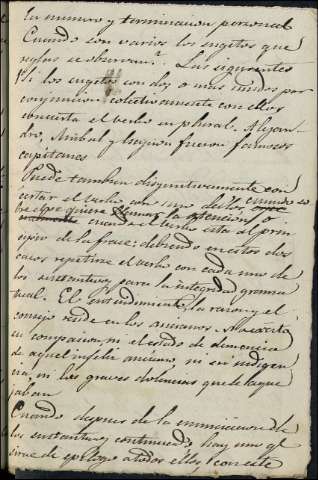 En numero y terminacion personal
Cuando son varios los sugetos que
reglas se observan? Las siguientes
Si los sugetos con dos o mas unidos por
conjuncion colectivamente con ellos
concierta el verbo en plural. Alejan
dro, Anibal y Escipion fueron famosos
capitanes
Puede tambien disyuntivamente con
certar el verbo con uno de los cuando es
bre el que quiere llamar la atencion, o
cuando el verbo esta al prin
cipio de la frace; debiendo en estos dos
casos repetirse el verbo con cada uno de
los sustantivos para la integridad grama
tical. El entendimiento, la razon y el
consejo reside en los ancianos. No acerta
en compasion, ni el estado de demencia
de aquel infeliz anciano, ni su indigen
cia, ni las graves dolencias que le aque
jaban
Cuando despues de la enunciacion de
los sustantivos continuados hay uno qe
sirve de epilogo a todos ellos, con este